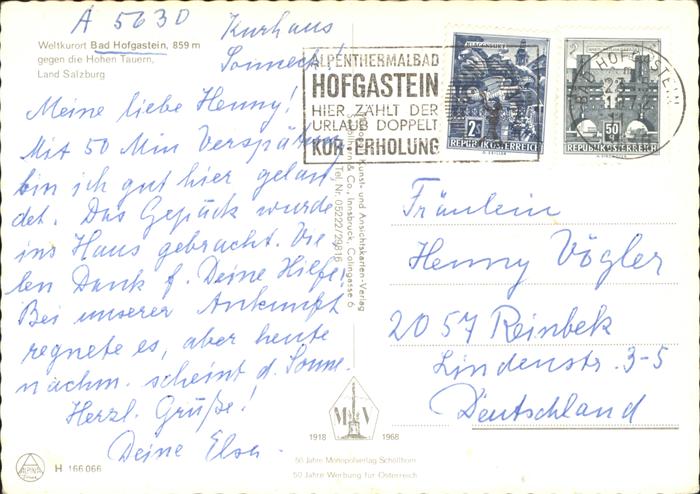 A 5630 Kurhaus
Sonneck!
Weltkurort Bad Hofgastein, 859 m
gegen die Hohen Tauern,
Land Salzburg
Meine liebe Henny!
Mit 50 Min Verspätung
bin ich gut hier gelan
det. Das Gepäck wurde
ins Haus gebracht. Vie
len Dank f. Deine Hilfe.
Bei unserer Ankunft
regnete es, aber heute
nachm. scheint d. Sonne.
Herzl. Grüße!
Deine Elsa.
H 166 066
ALPENTHERMALBAD
HOFGASTEIN
HIER ZÄHLT DER
URLAUB DOPPELT
KUR-ERHOLUNG
KLAGENFURT
2S
REPUBLIK ÖSTERREICH
50
REPUBLIK ÖSTERREICH
BAD HOFGASTEIN
Kunst- und Ansichtskarten-Verlag
& Co., Innsbruck, Colingasse 6
Fräulein
Henny Vögler
2057 Reinbek
Lindenstr. 3-5
Deutschland
M V
1918 1968
50 Jahre Monopolverlag Schöllhorn
50 Jahre Werbung für Österreich